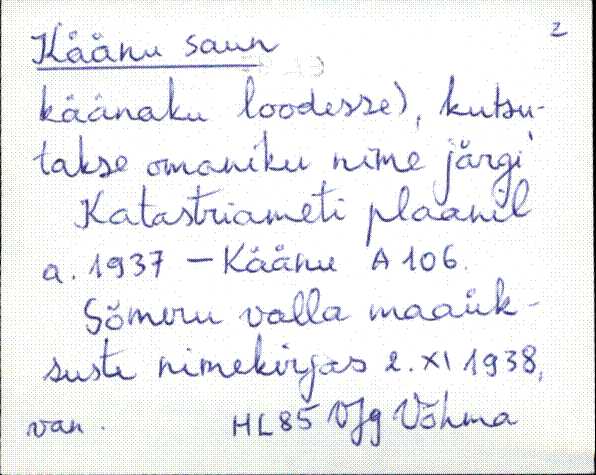 2
Käänu saun
käänaku loodesse), kutsu-
takse omaniku nime järgi
Katastriameti plaanil
a. 1937 – Käänu A 106.
Sõmeru valla maaük-
suste nimekirjas 2. XI 1938,
van. HL85 VJg Võhma